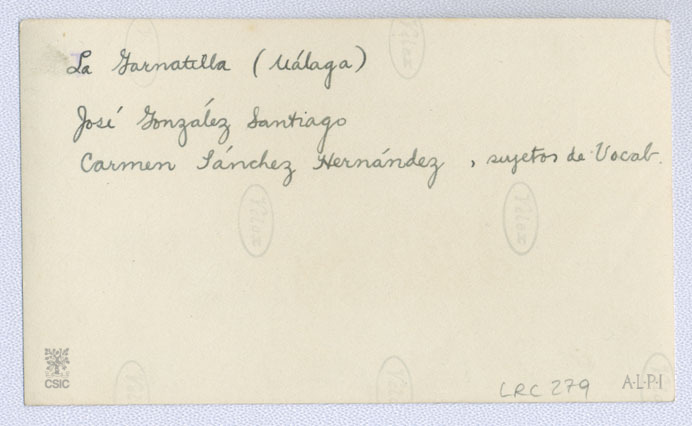 La Garnatilla (Málaga)
José González Santiago
Carmen Sánchez Hernández, sujetos de Vocab.
Velox
Velox
Velox
CSIC
LRC 279
A·L·P·I